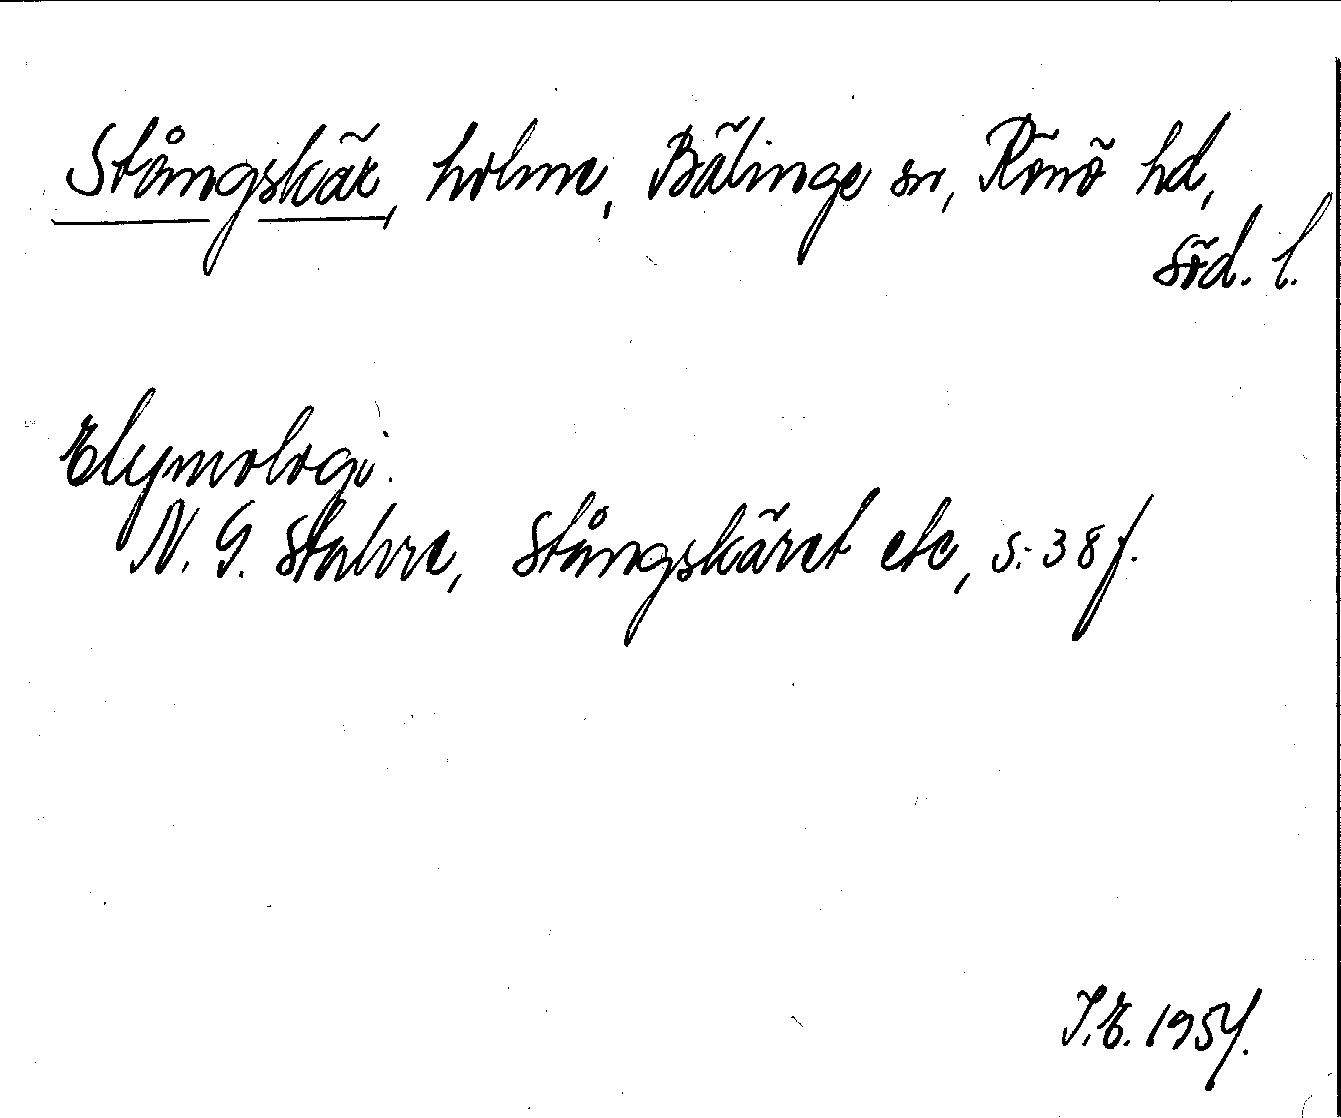 Stångskär, holme, Bälinge sn, Rönö hd,
Söd. l.
Etymologi.
N. G. Stahre, Stångskäret etc, s. 38 f.
I. E. 1954.